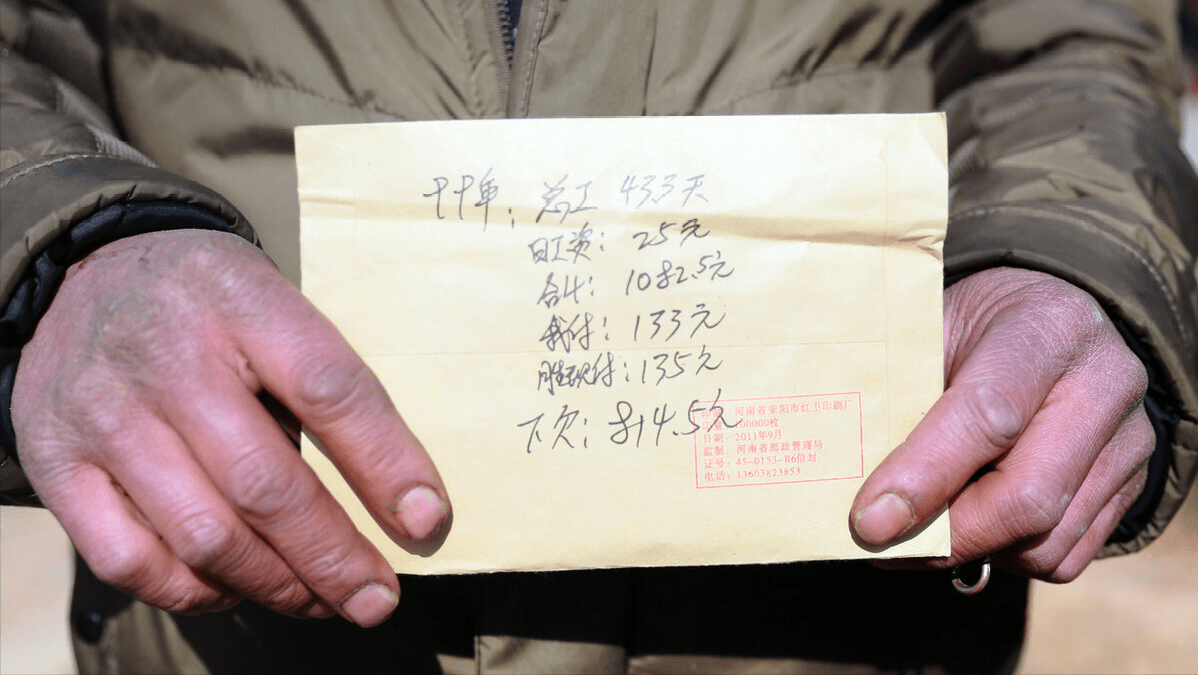 总工 43.3天
日工资：25元
合计：1082.5元
我付：133元
付：135元
下欠：814.5元
河南省荥阳市红卫印刷厂
100000枚
日期：2011年9月
监制：河南省邮政管理局
证号：45-0153-B6信封
电话：13603823853